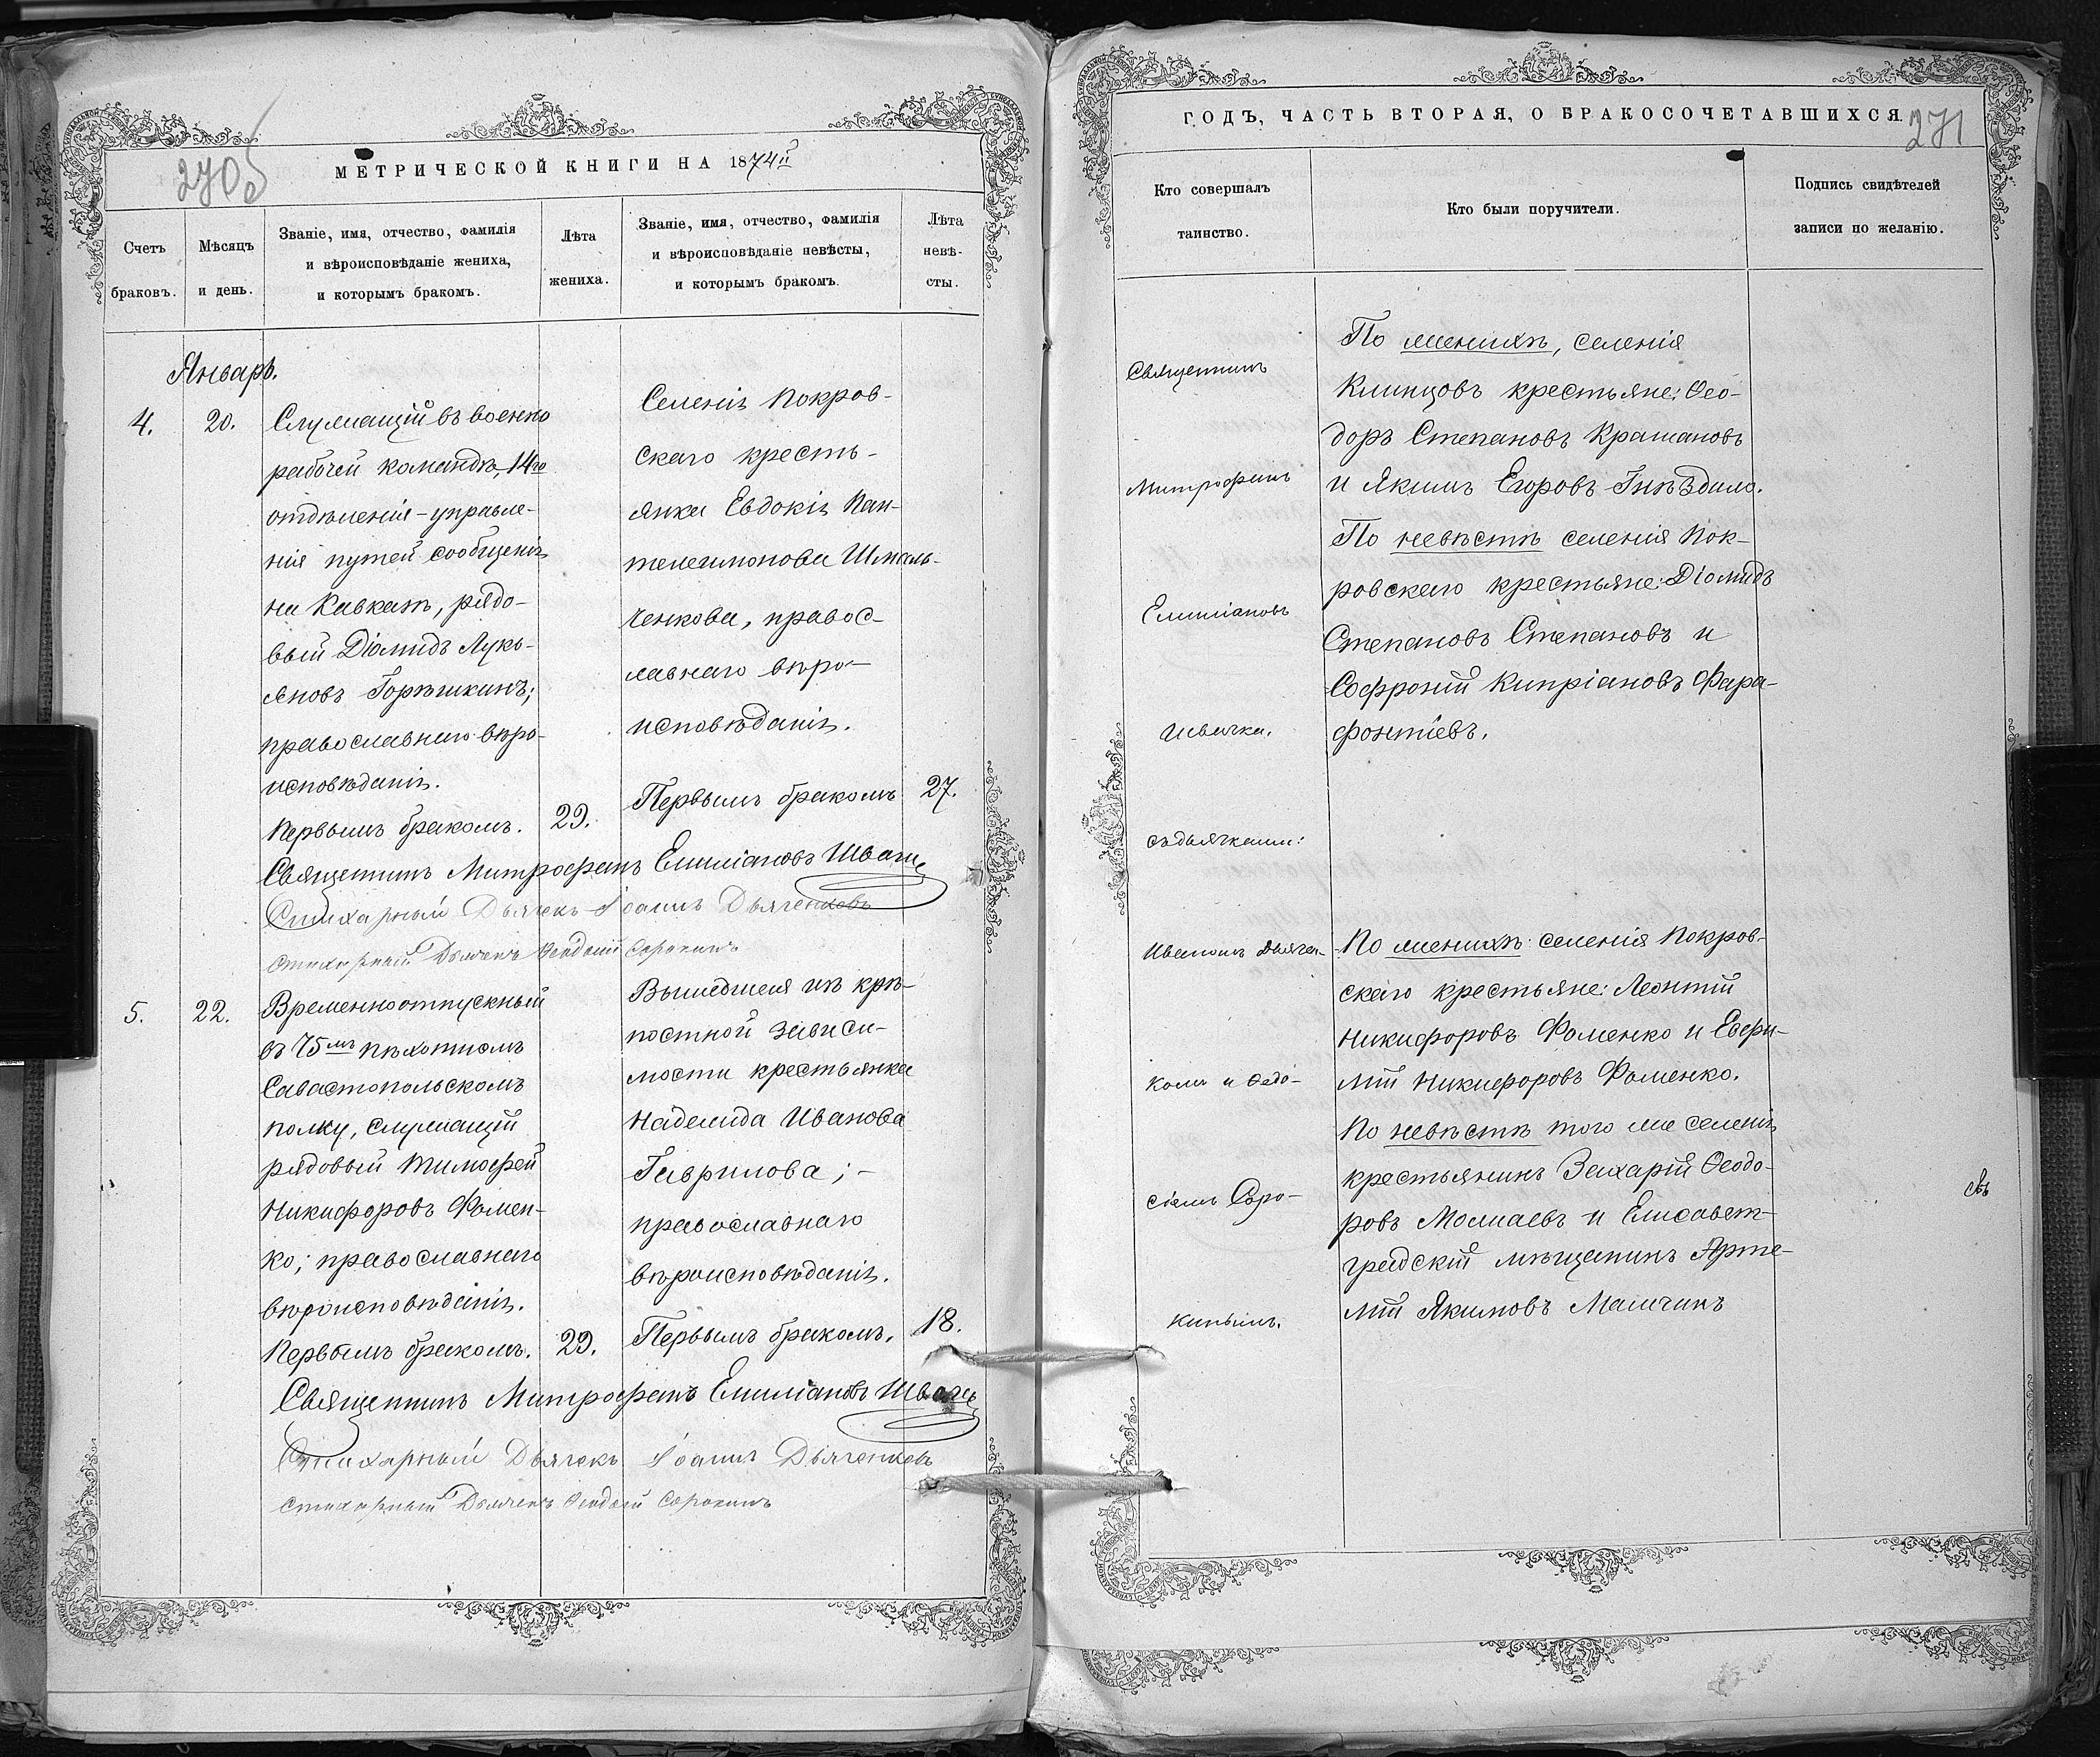 270б
МЕТРИЧЕСКОЙ КНИГИ НА 1874й
Счетъ браковъ.
Мѣсяцъ и день.
Званіе, имя, отчество, фамилія
и вѣроисповѣданіе жениха,
и которымъ бракомъ.
Лѣта жениха.
Званіе, имя, отчество, фамилія
и вѣроисповѣданіе невѣсты,
и которымъ бракомъ.
Лѣта невѣ-
сты.
Январь.
4.
20.
Служащій въ военно
рабочей командѣ, 14го
отдѣленія-управле-
нія путей сообщенія
на Кавказѣ, рядо-
вый Діомидъ Лукь-
яновъ Горѣшкинъ;
православнаго вѣро-
исповѣданія.
Первымъ бракомъ.
29.
Селенія Покров-
скаго кресть-
янка Евдокія Пан-
телеимонова Шмаль-
ченкова, правос-
лавнаго вѣро-
исповѣданія.
Первымъ бракомъ
27.
Священникъ Митрофанъ Емиліановъ Швачка
Стихарный Дьячекъ Іоаннъ Дьяченковъ
Стихарный Дьячекъ Ѳеодосій Сорокинъ
5.
22.
Временноотпускный
въ 75мъ пѣхотномъ
Савастопольскомъ
полку, служащій
рядовый Тимофей
Никифоровъ Фомен-
ко; православнаго
вѣроисповѣданія.
Первымъ бракомъ.
29.
Вышедшая изъ крѣ-
постной зависи-
мости крестьянка
Надежда Иванова
Гаврилова; -
православнаго
вѣроисповѣданія.
Первымъ бракомъ.
18.
Священникъ Митрофанъ Емиліановъ Швачка
Стихарный Дьячекъ Іоаннъ Дьяченковъ
Стихарный Дьячекъ Ѳеодосій Сорокинъ
ГОДЪ, ЧАСТЬ ВТОРАЯ, О БРАКОСОЧЕТАВШИХСЯ.
271
Кто совершалъ
таинство.
Кто были поручители.
Подпись свидѣтелей
записи по желанію.
Священникъ
Митрофанъ
Емиліановъ
Швачка.
съ дьячками:
Иваномъ Дьячен-
комъ и Ѳедо-
сіемъ Соро-
кинымъ.
По женихѣ, селенія
Клинцовъ крестьяне: Ѳео-
доръ Степановъ Крамановъ
и Якимъ Егоровъ Гнѣздило.
По невѣстѣ селенія Пок-
ровскаго крестьяне: Діомидъ
Степановъ Степановъ и
Софроній Кипріановъ Фара-
фонтіевъ.
По женихѣ: селенія Покров-
скаго крестьяне: Леонтій
Никифоровъ Фоменко и Евфи-
мій Никифоровъ Фоменко.
По невѣстѣ того же селенія
крестьянинъ Захарій Ѳеодо-
ровъ Можаевъ и Елисавет-
градскій мѣщанинъ Арте-
мій Якимовъ Мамчикъ